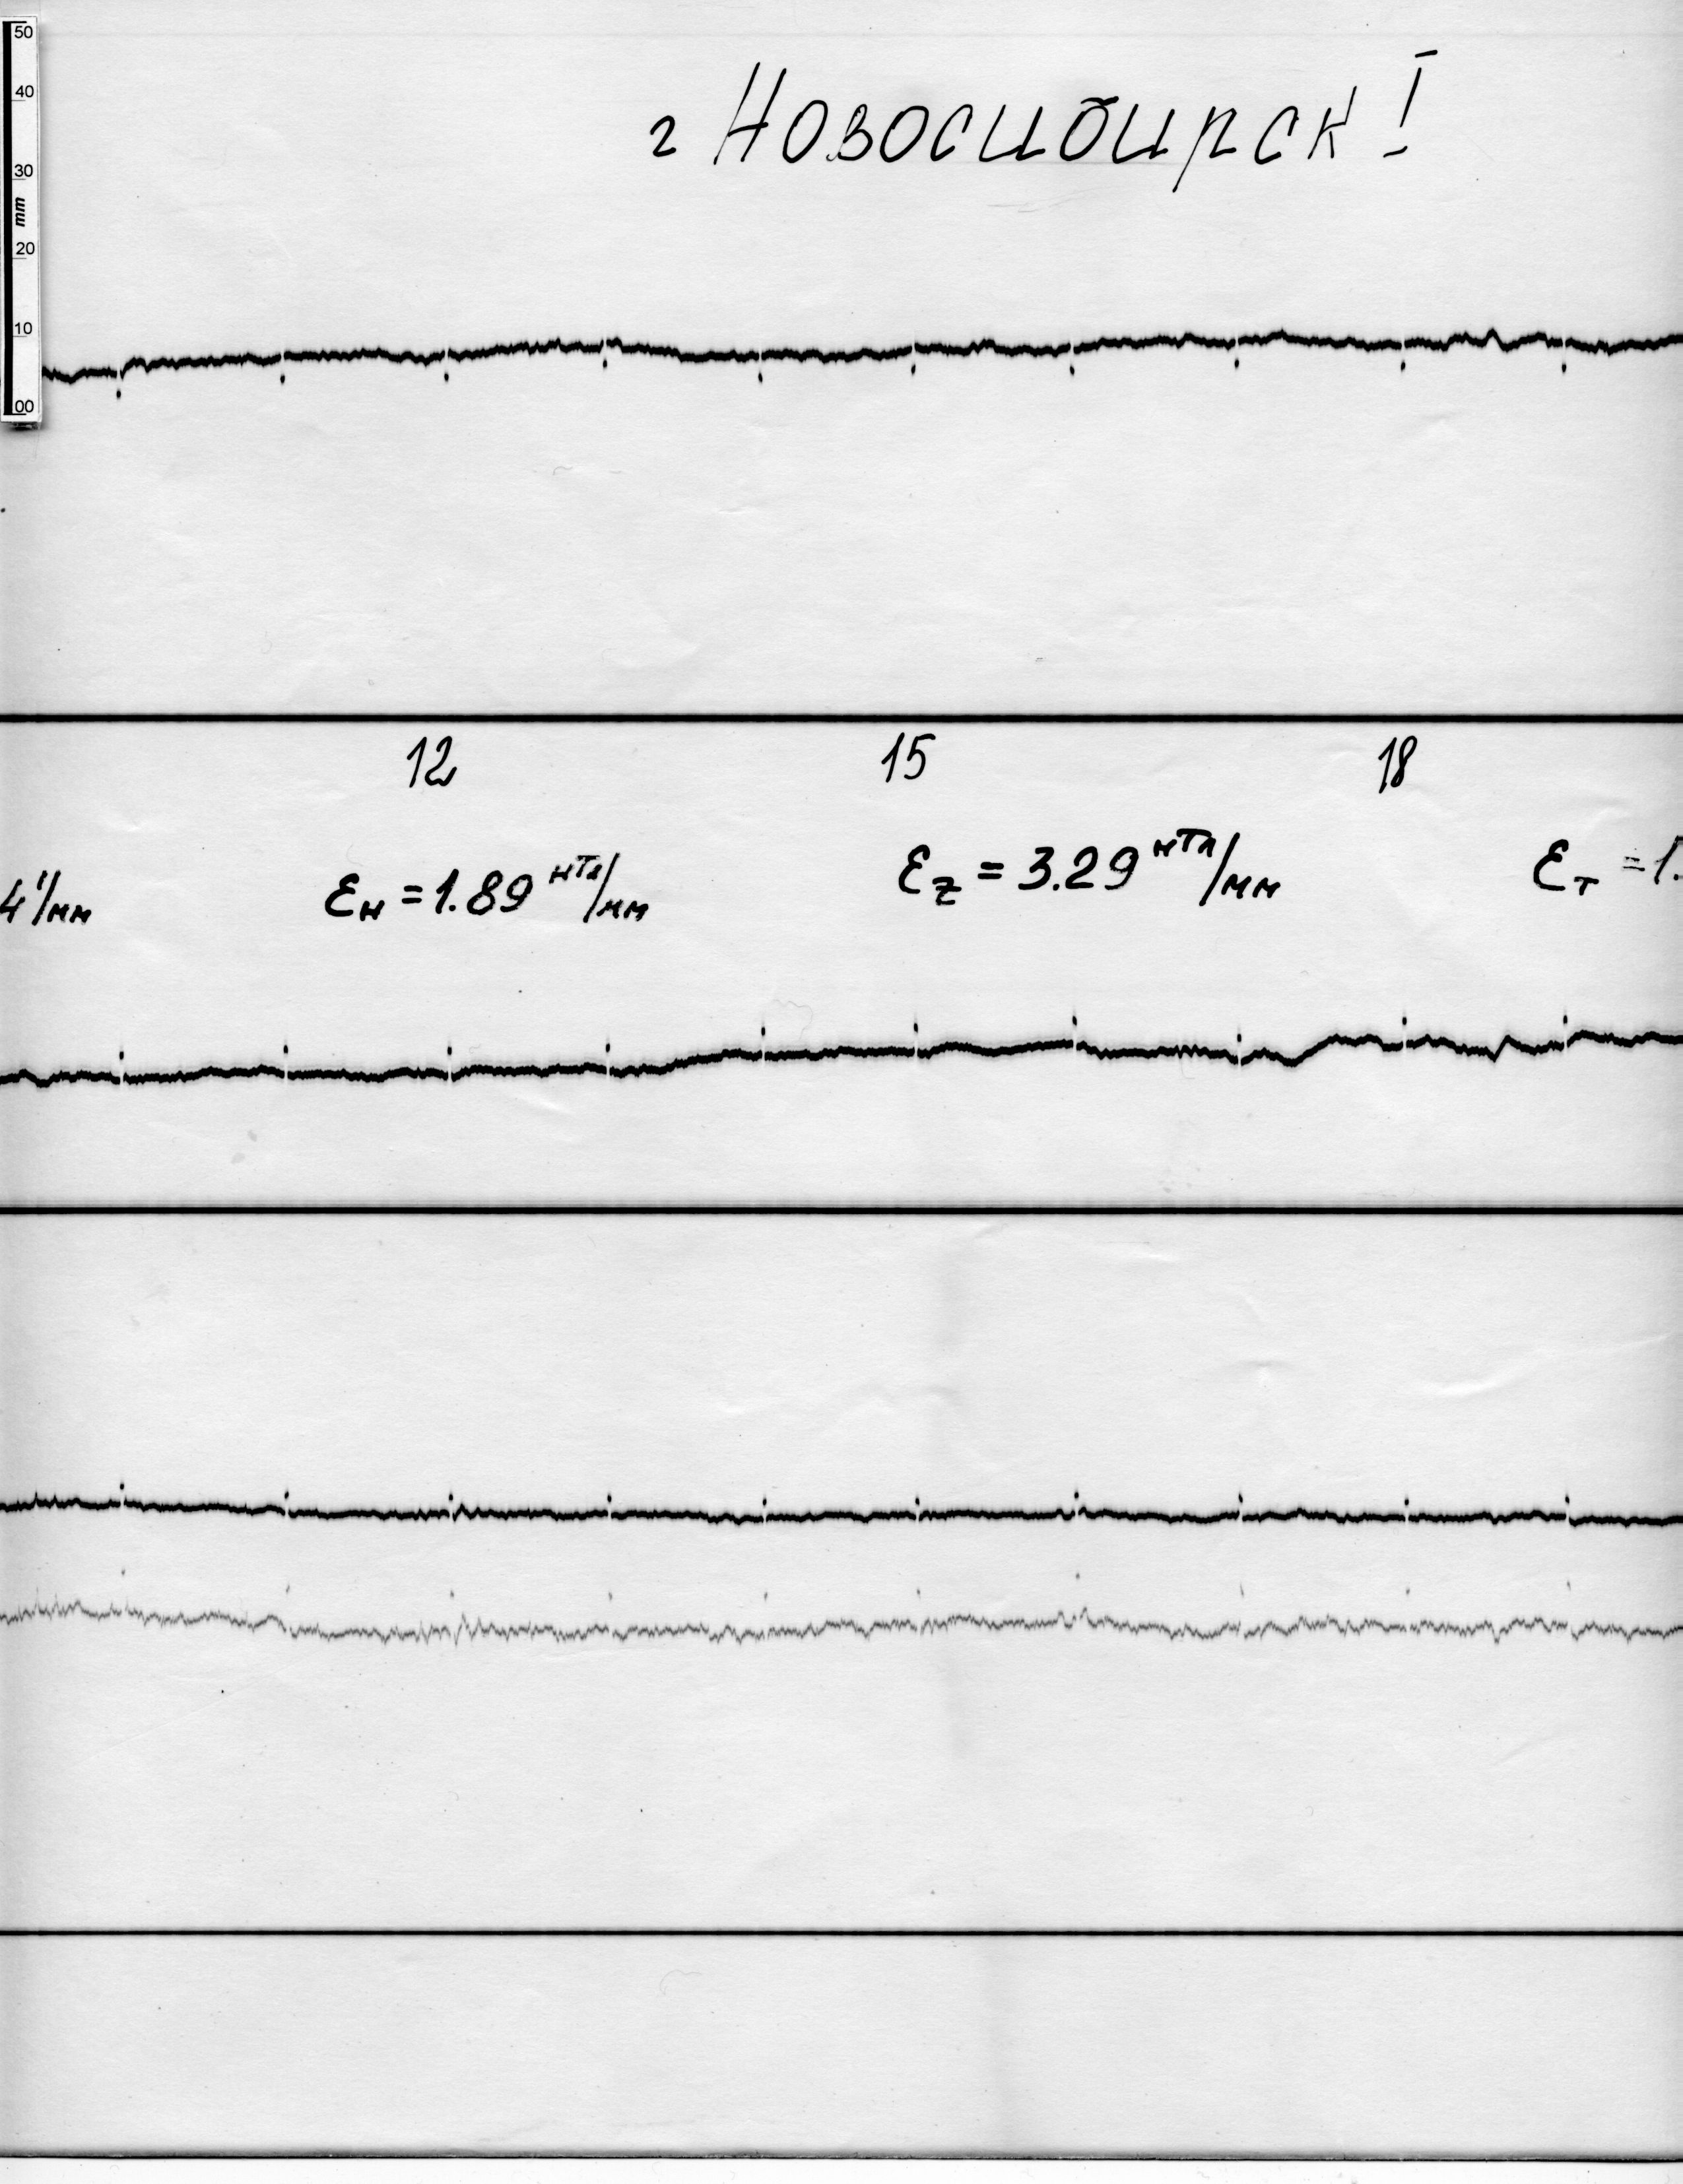 50
40
30
mm
20
10
00
г Новосибирск I
12 15 18
4'/мм
εн = 1.89 нТл/мм
εz = 3.29 нТл/мм
εт = 1.